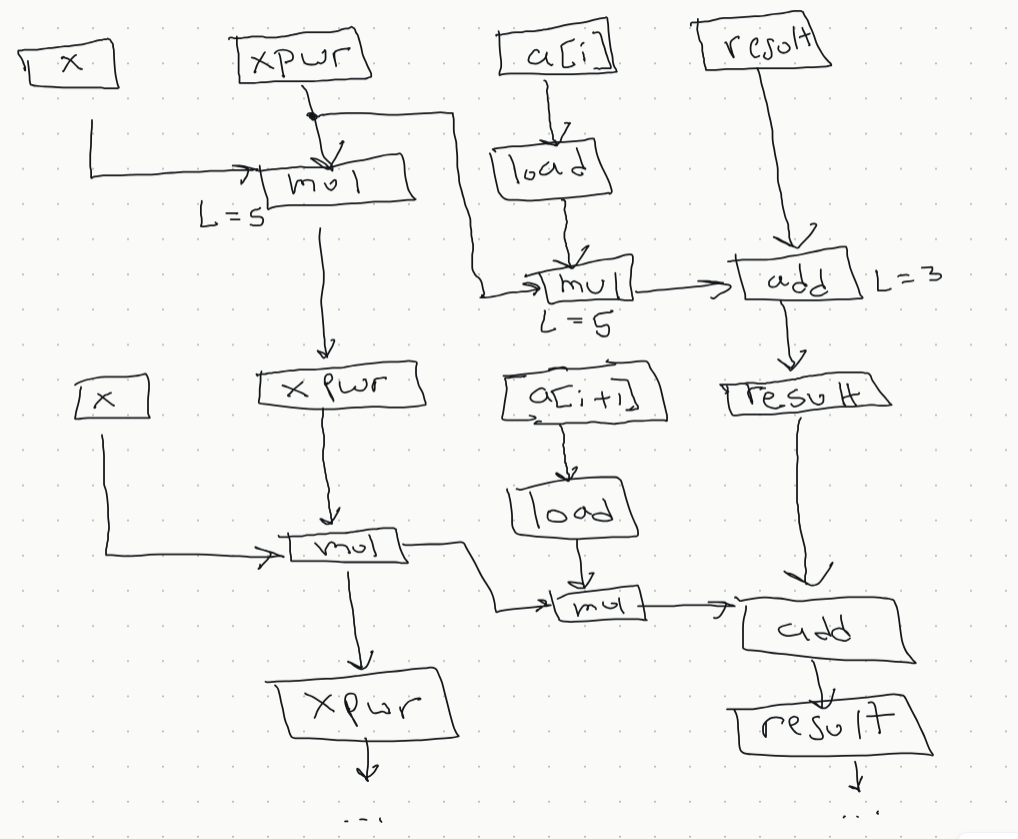 x
xpwr
a[i]
result
load
mul
L=5
mul
L=5
add
L=3
x
xpwr
a[i+1]
result
load
mul
mul
add
xpwr
result
...
...